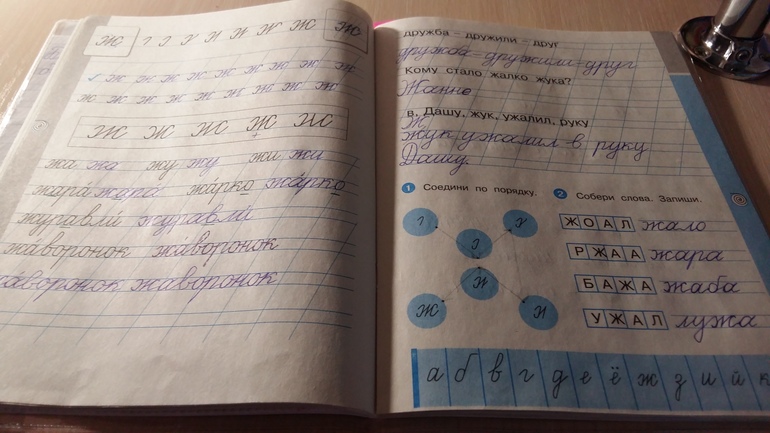 ж ж
ж ж ж ж ж ж ж ж ж
ж ж ж ж ж ж ж ж ж ж
ж ж ж ж ж
жа жа жу жу жи жи
жара́ жара́ жа́рко жа́рко
журавли́ журавли́
жа́воронок жа́воронок
жа́воронок жа́воронок
дружба – дружили – друг
дружба – дружили – друг
Кому стало жалко жука?
Жанне
в, Дашу, жук, ужалил, руку
Ж
Жук ужалил в руку
Дашу.
1 Соедини по порядку. 2 Собери слова. Запиши.
ЖОАЛ жало
РЖАА жара
БАЖА жаба
УЖАЛ лужа
ж
а б в г д е ё ж з и й к